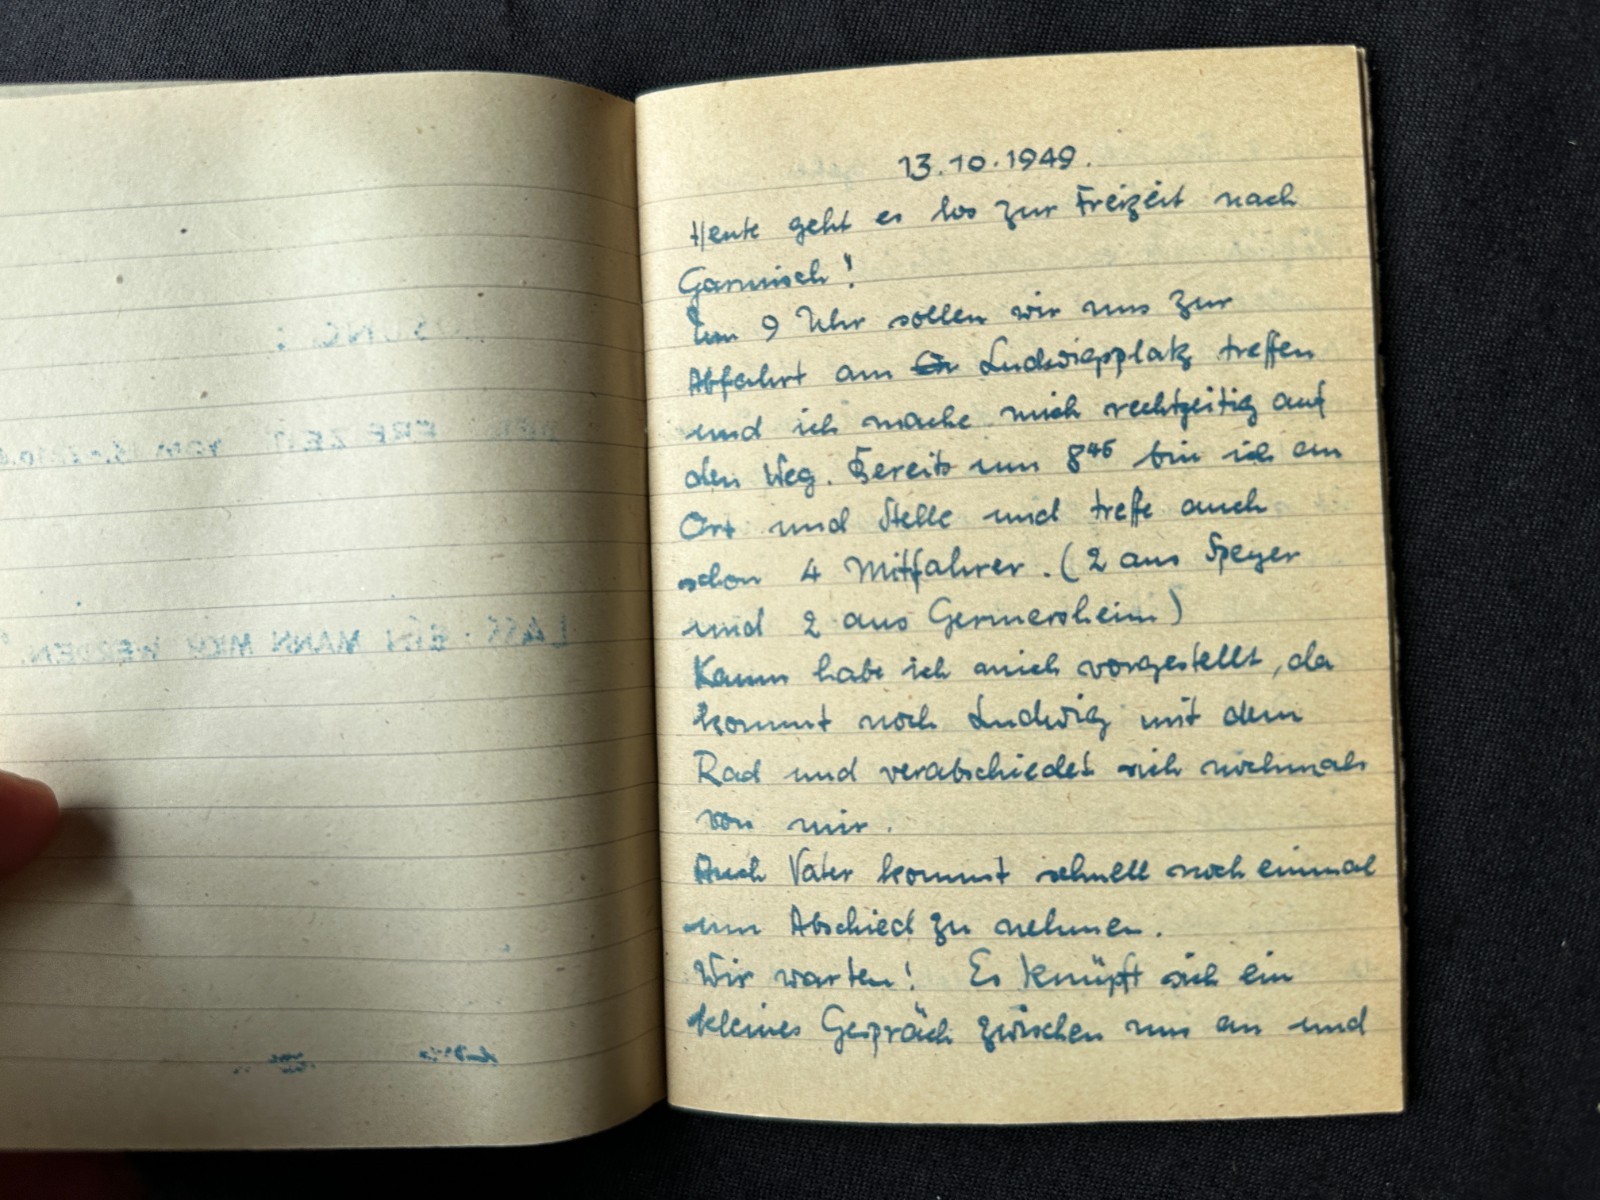 13.10.1949.
Heute geht es los zur Freizeit nach
Garmisch!
Um 9 Uhr sollen wir uns zur
Abfahrt am Ludwigsplatz treffen
und ich mache mich rechtzeitig auf
den Weg. Bereits um 8⁴⁵ bin ich an
Ort und Stelle und treffe auch
schon 4 Mitfahrer. (2 aus Speyer
und 2 aus Germersheim)
Kaum habe ich mich vorgestellt, da
kommt noch Ludwig mit dem
Rad und verabschiedet sich nochmals
von mir.
Auch Vater kommt schnell noch einmal
um Abschied zu nehmen.
Wir warten! Es knüpft sich ein
kleines Gespräch zwischen uns an und